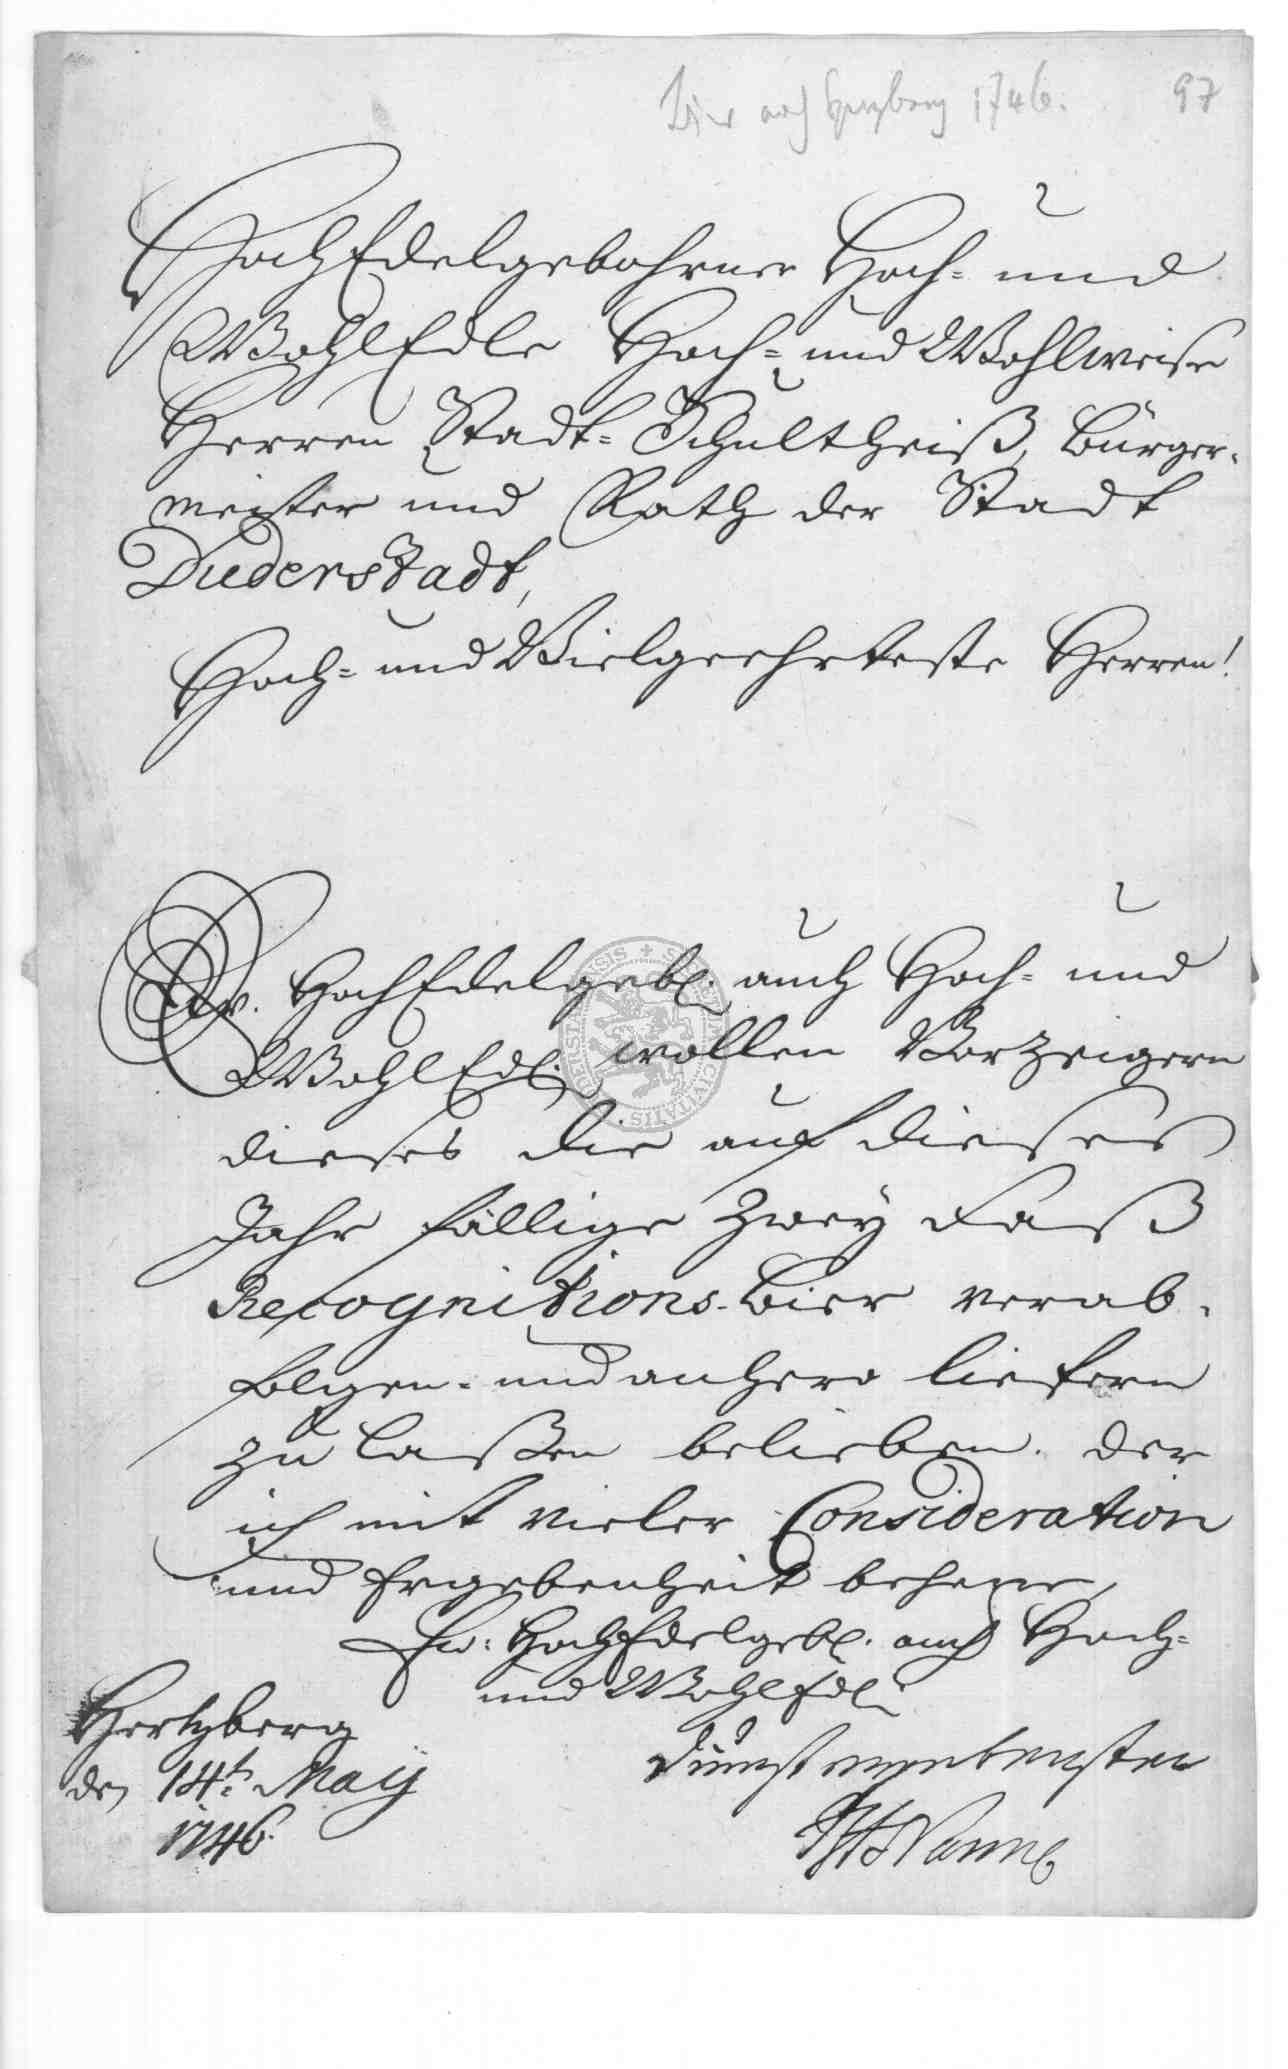 Bier nach Herzberg 1746. 97
HochEdelgebohrner Hoch- und
WohlEdle Hoch- und Wohlweise
Herren Stadt-Schultheiß, Bürger-
meister und Rath der Stadt
Duderstadt,
Hoch- und Vielgeehrteste Herren!
Ew. HochEdelgebl. auch Hoch- und
WohlEdl. wollen Vorzeigern
dieses die auf dieses
Jahr fällige zwey Faß
Recognitions-Bier verab-
folgen- und anhero liefern
zu laßen belieben. der
ich mit vieler Consideration
und Ergebenheit beharre,
Ew. HochEdelgebl. auch Hoch-
und WohlEdl.
Hertzberg
den 14t. May
1746.